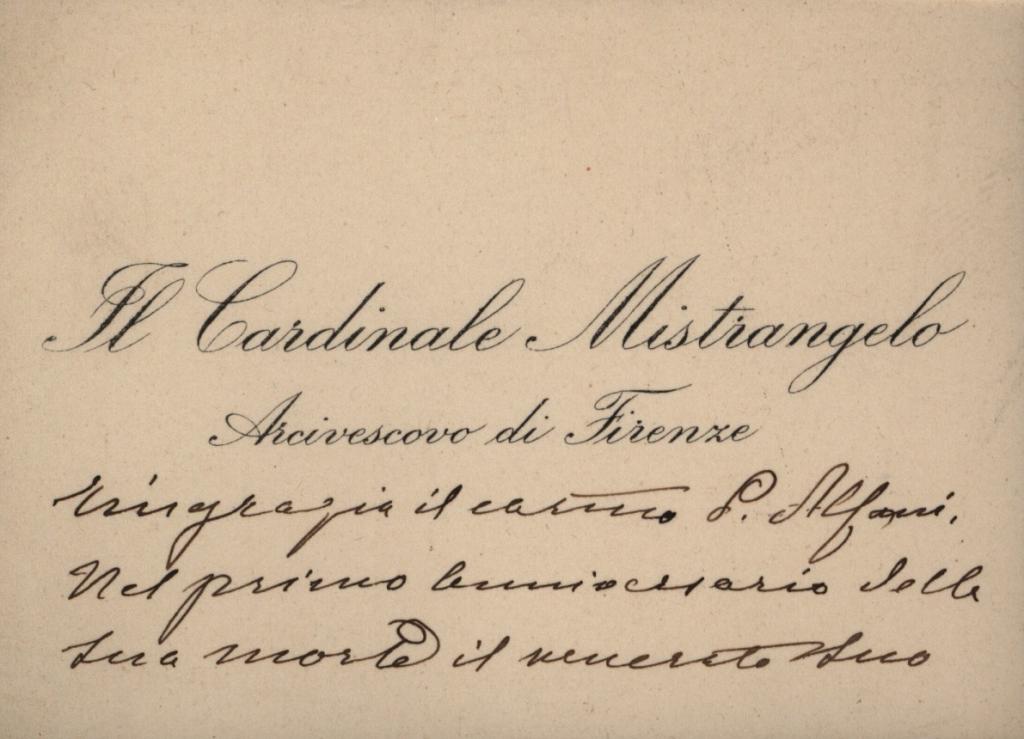 Il Cardinale Mistrangelo
Arcivescovo di Firenze
ringrazia il carmo P. Alfani.
Nel primo anniversario della
sua morte il venerato suo